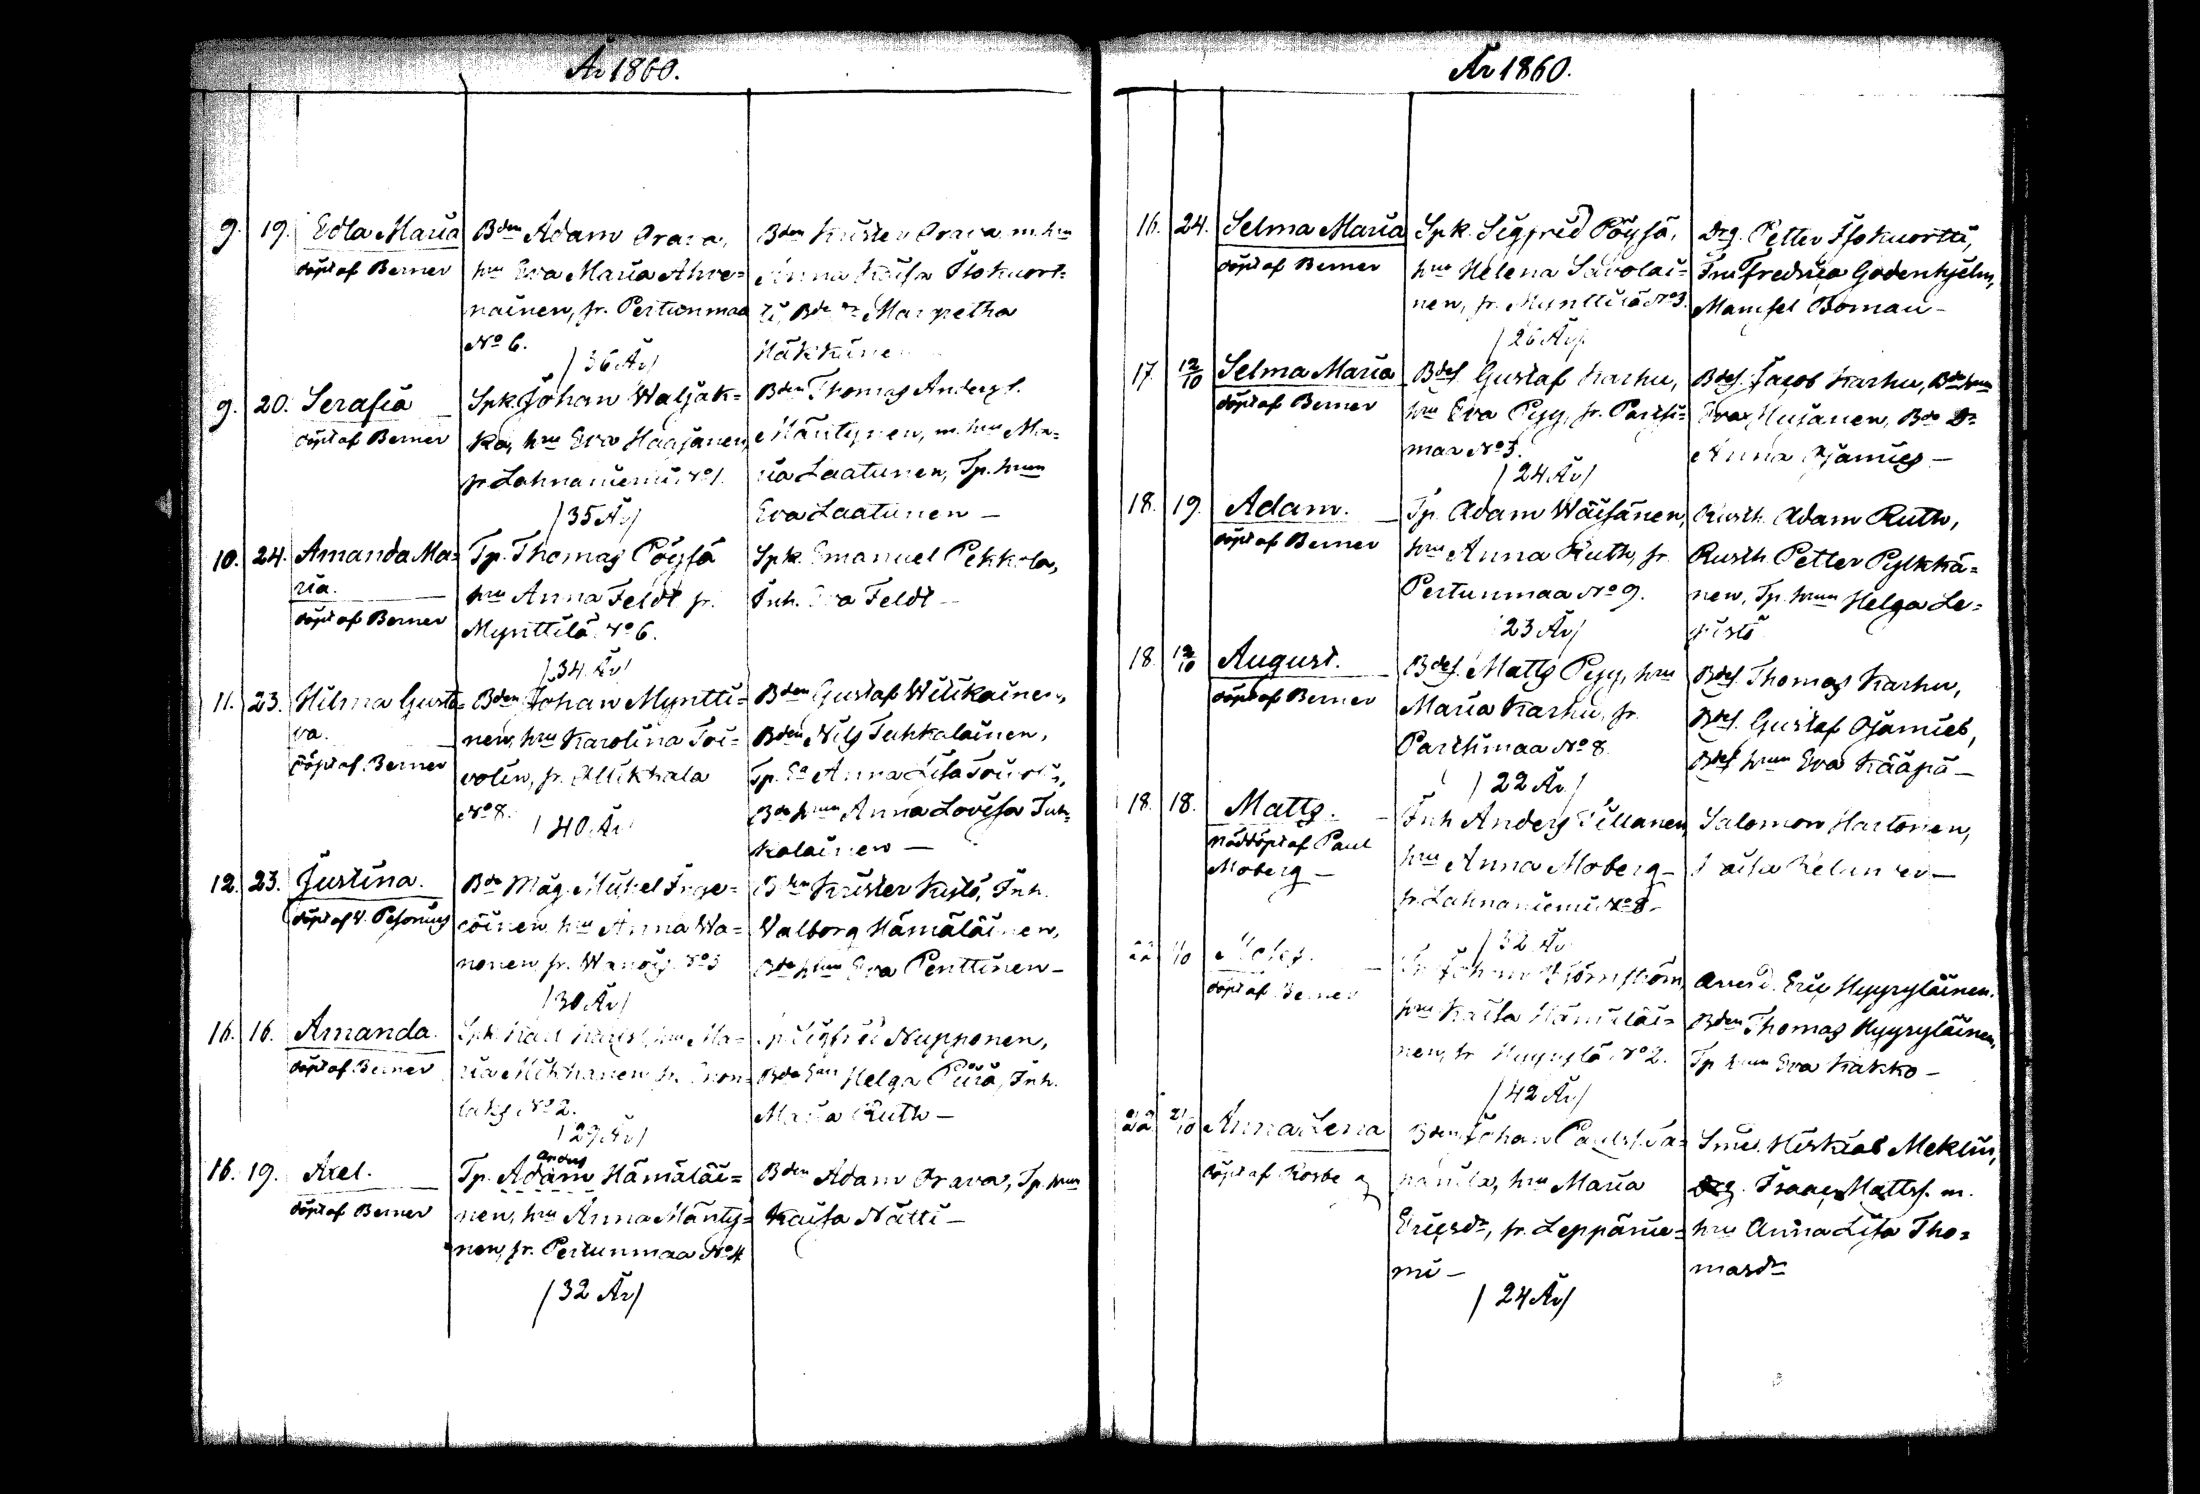 År 1860.
9. 19. Edla Maria
döpt af Berner
Bden Adam Orava,
hru Eva Maria Ahve=
nainen, fr. Pertunmaa
No 6.
/36 År/
Bden Krister Orava m. hru
Anna Kaisa Isokuort=
ti, Bde Margretha
Häkkine
9. 20. Serafia
döpt af Berner
Spk. Johan Waljak=
ka, hru Eva Haajanen,
fr. Lahnaniemi, No 1.
/35 År/
Bden Thomas Andersf.
Mäntynen, m. hru Ma=
ria Laatunen, Tp. hrun
Eva Laatunen —
10. 24. Amanda Ma=
ria.
döpt af Berner
Tp. Thomas Pöysä
hru Anna Feldt fr.
Mynttilä No 6.
/34 År/
Spk. Emanuel Pekkola,
Inh. Eva Feldt —
11. 23. Hilma Gusta=
va.
döpt af Berner
Bden Johan Myntti=
nen, hru Karolina Toi=
volin, fr. Ollikkala
No 8.
/40 År/
Bden Gustaf Wilikainen,
Bden Nils Tuhkalainen,
Tp. Anna Lisa
Bde hrun Anna Lovisa Tuh=
kalainen —
12. 23. Justina.
döpt af V. Pesonius
Bde Måg Mikel Inge=
röinen, hru Anna Wa=
nonen fr. No 3
/30 År/
Bden Krister Kylö, Inh.
Walborg Hämäläinen,
Bde hrun Eva Penttinen —
16. 16. Amanda.
döpt af Berner
Spk. Karl hru Ma=
ria Mikkanen fr.
No 2.
/29 År/
Sigfrid Nupponen,
Bde Helga Piirä, Inh.
Maria Ruth —
16. 19. Axel.
döpt af Berner
Anders
Tp. Adam Hämäläi=
nen, hru Anna Mänty=
nen, fr. Pertunmaa No 4
/32 År/
Bden Adam Orava, Tp. hrun
Kaisa Nätti —
År 1860.
16. 24. Selma Maria
döpt af Berner
Spk. Sigfrid Pöysä,
hru Helena Savolai=
nen, fr. Mynttilä No 3.
/26 År/
Drg. Petter Isokuortti,
Fru Fredrica Godenhjelm,
Mamsel Boman —
17. 12/10 Selma Maria
döpt af Berner
Bdes. Gustaf Karhu,
hru Eva Pyy, fr. Parthi=
maa No 3.
/24 År/
Bdes. Jacob Karhu, Bde hrun
Eva Hujanen, Bde Dr
Anna Ojamies —
18. 19. Adam.
döpt af Berner
Tp. Adam Wäisänen,
hru Anna Ruth, fr.
Pertunmaa No 9.
/23 År/
Rusth. Adam Ruth,
Rusth. Petter Pylkkä=
nen, Tp. hrun Helga Le=
18. 12/10 August.
döpt af Berner
Bdes. Matts Pyy, hru
Maria Karhu, fr.
Parthimaa No 8.
/22 År/
Bdes. Thomas Karhu,
Bdes. Gustaf Ojamies,
Bdes hrun Eva Kääpä —
18. 18. Matts.
Nöddöpt af Paul
Moberg —
Inh Anders Tillanen,
hru Anna Moberg —
fr. Lahnaniemi No 8
/32 År
Salomon Hartonen,
22 1/10
döpt af Berner
Johan Björnström,
hru Kaisa Hämäläi=
nen, fr. Hyyrylä No 2.
/42 År/
Eric Hyyryläinen.
Bden Thomas Hyyryläinen,
Tp hrun Eva Kakko —
22 21/10 Anna Lena
döpt af Korbe
Bden Johan
hru Maria
Ericsdr, fr. Leppänie=
mi —
/24 År/
Smed. Hiskias Meklin,
Drg. Isaac Mattsf. m.
hru Anna Lisa Tho=
masdr